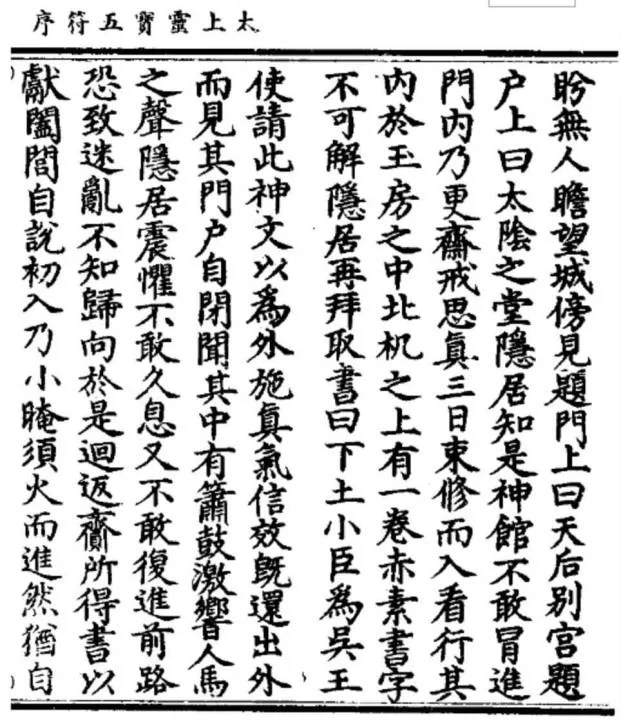 太上靈寶五符序
盻無人瞻望城傍見題門上曰天后别宫題
户上曰太陰之堂隱居知是神館不敢冒進
門内乃更齋戒思真三日束修而入看行其
内於玉房之中北机之上有一卷赤素書字
不可解隱居再拜取書曰下土小臣爲吴王
使請此神文以爲外施真氣信效既還出外
而見其門户自閉聞其中有簫鼓激響人馬
之聲隱居震懼不敢久息又不敢復進前路
恐致迷亂不知歸向於是迴返齎所得書以
獻闔閭自說初入乃小晻須火而進然猶自